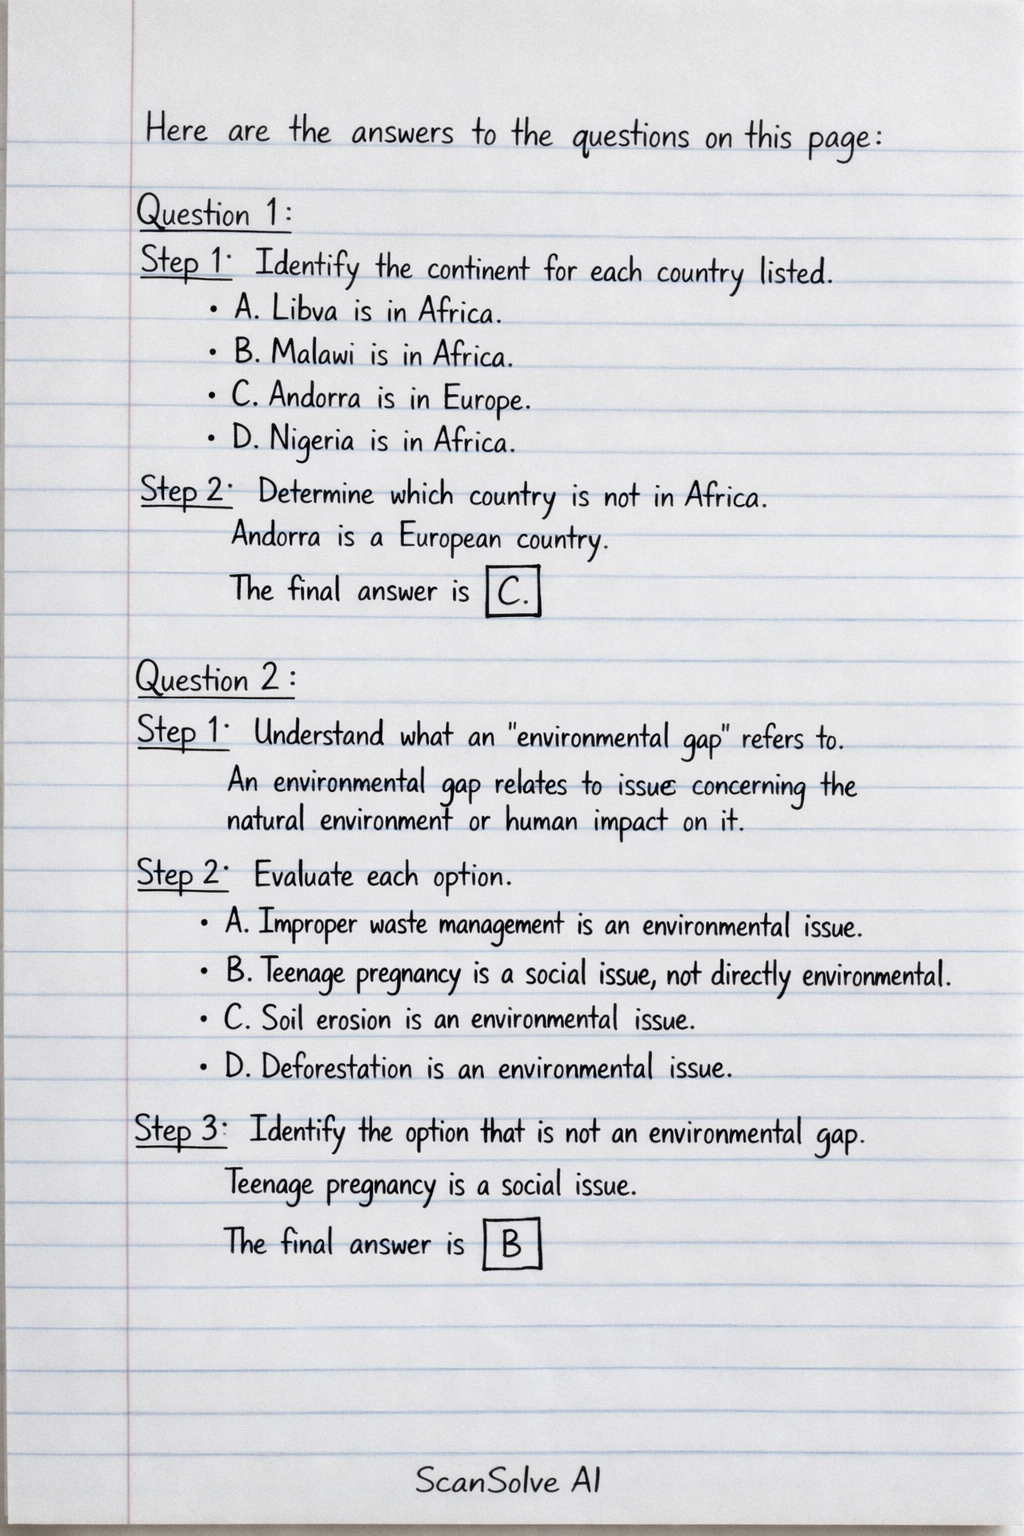 Here are the answers to the questions on this page:
Question 1:
Step 1: Identify the continent for each country listed.
• A. Libva is in Africa.
• B. Malawi is in Africa.
• C. Andorra is in Europe.
• D. Nigeria is in Africa.
Step 2: Determine which country is not in Africa.
Andorra is a European country.
The final answer is C.
Question 2:
Step 1: Understand what an "environmental gap" refers to.
An environmental gap relates to issue concerning the
natural environment or human impact on it.
Step 2: Evaluate each option.
• A. Improper waste management is an environmental issue.
• B. Teenage pregnancy is a social issue, not directly environmental.
• C. Soil erosion is an environmental issue.
• D. Deforestation is an environmental issue.
Step 3: Identify the option that is not an environmental gap.
Teenage pregnancy is a social issue.
The final answer is B
ScanSolve AI